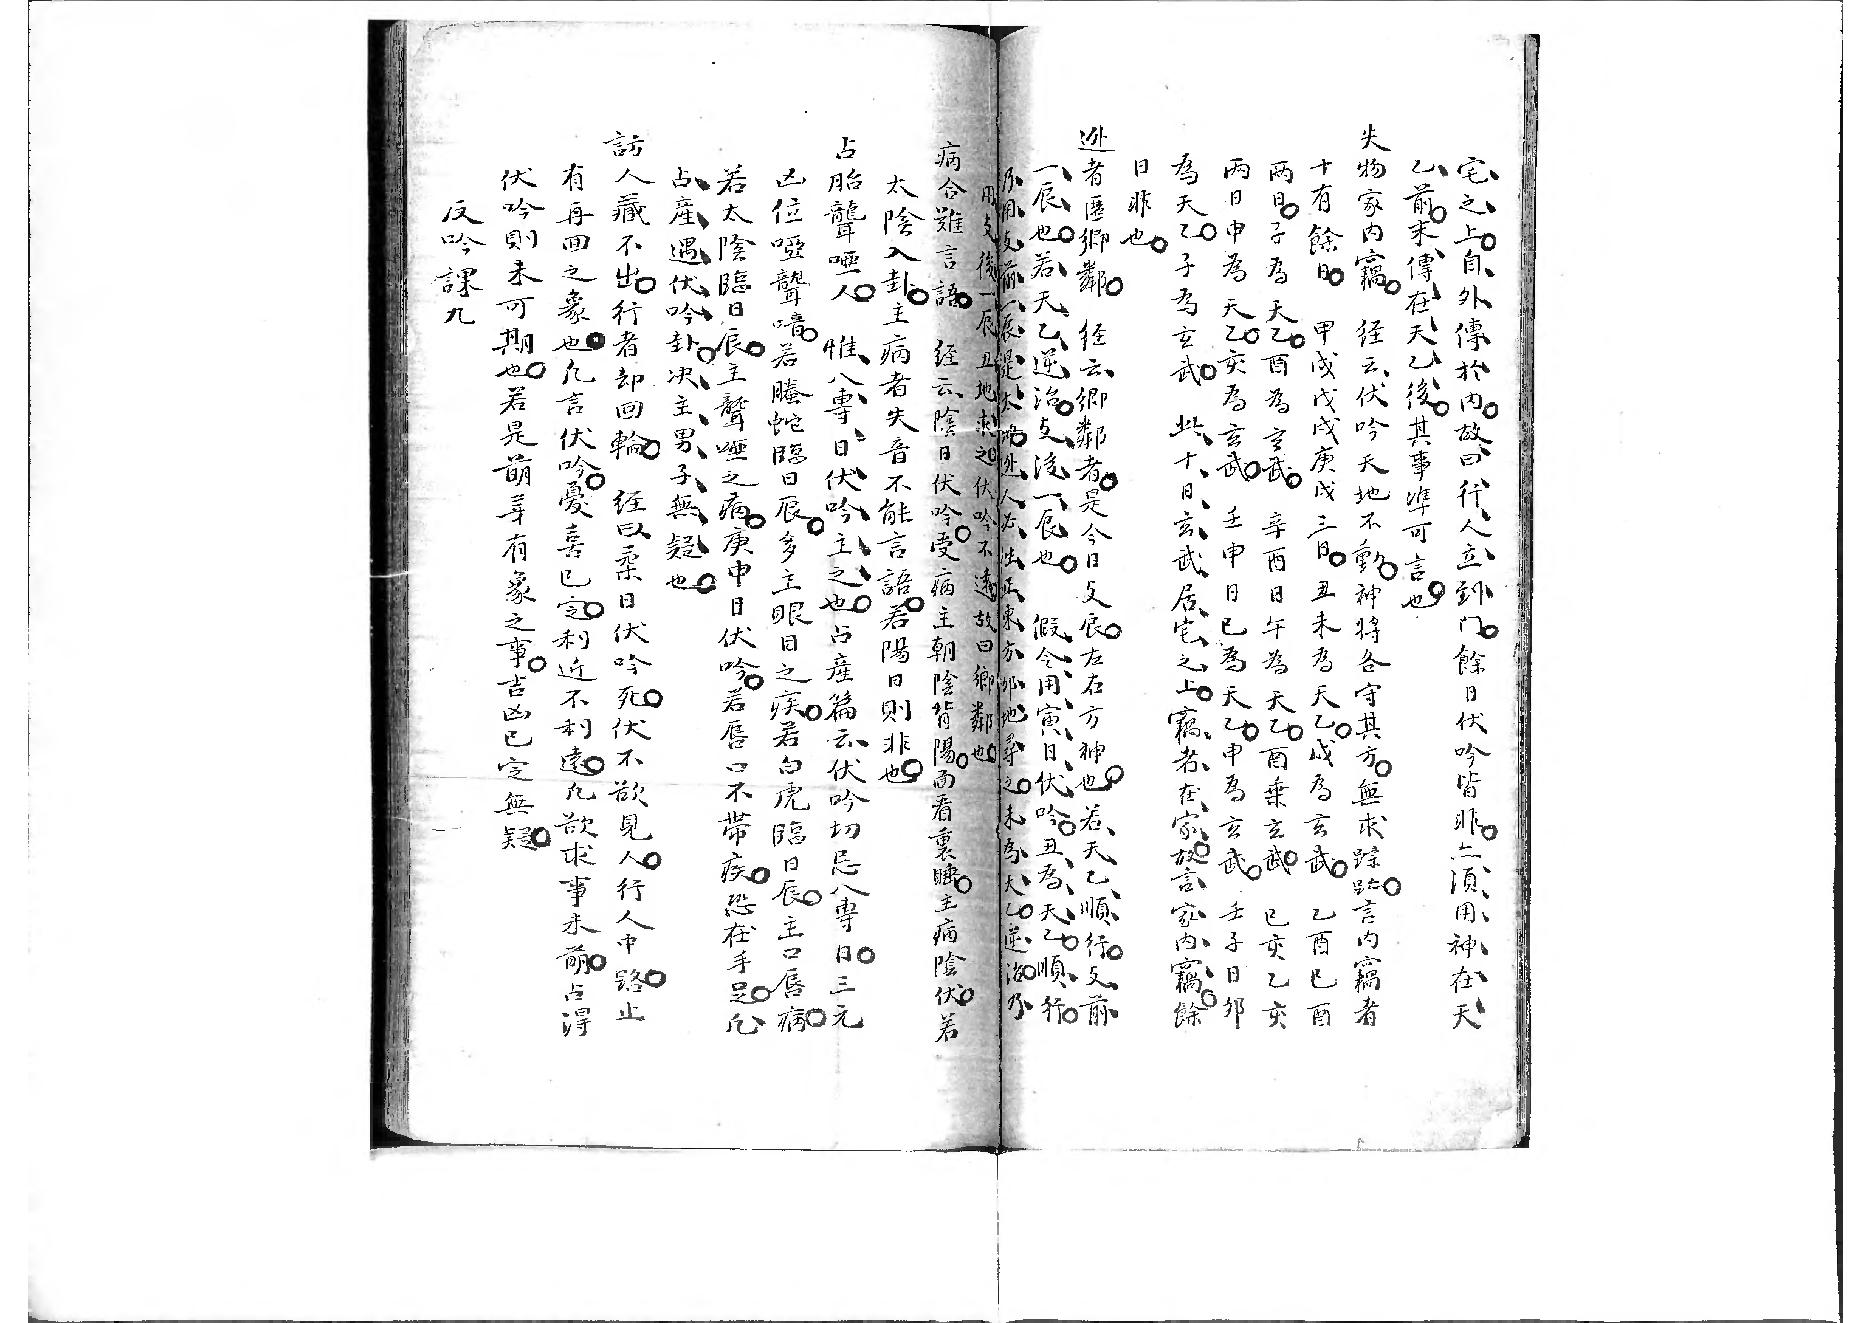 宅之上。自外傳於内。故曰行人立到門。餘日伏吟皆非。亦須用神在天
乙前。末傳在天乙後。其事準可言也。
失物家内竊。経云伏吟天地不動。神將各守其方。無求踪跡。言内竊者
十有餘日。甲戌戊戌庚戌三日。丑未為天乙。戌為玄武。乙酉己酉
兩日。子為天乙。酉為玄武。辛酉日午為天乙。酉乗玄武。己亥乙亥
兩日申為天乙。亥為玄武。壬申日巳為天乙。申為玄武。壬子日卯
為天乙。子為玄武。此十日玄武居宅之上。竊者在家。故言家内竊。餘
日非也。
逃者匿鄉鄰。経云鄉鄰者。是今日支辰。左右方神也。若天乙順行。支前
一辰也。若天乙逆治。支後一辰也。假令用寅日伏吟。丑為天乙。順行。
乃用支前一辰是太冲。逃人必出正東方卯地尋之。未為天乙。逆治。乃
用支後一辰丑地求之。伏吟不遠。故曰鄉鄰也。
病合難言語。経云陰日伏吟。受病主朝陰背陽。面看裏睡。主病陰伏。若
太陰入卦。主病者失音不能言語。若陽日則非也。
占胎聾啞人。惟八專日伏吟主之也。占産篇云伏吟切忌八專日。三元
凶位啞聾喑。若螣蛇臨日辰。多主眼目之疾。若白虎臨日辰。主口唇病。
若太陰臨日辰。主聾啞之病。庚申日伏吟。若唇口不帶疾。恐在手足。凡
占産遇伏吟卦。决主男子無疑也。
訪人藏不出。行者却回輪。経曰柔日伏吟死。伏不欲見人。行人中路止。
有再回之象也。凡言伏吟。憂喜已定。利近不利遠。凡欲求事未萌。占得
伏吟則未可期也。若是萌芽有象之事。吉凶已定無疑。
反吟課九